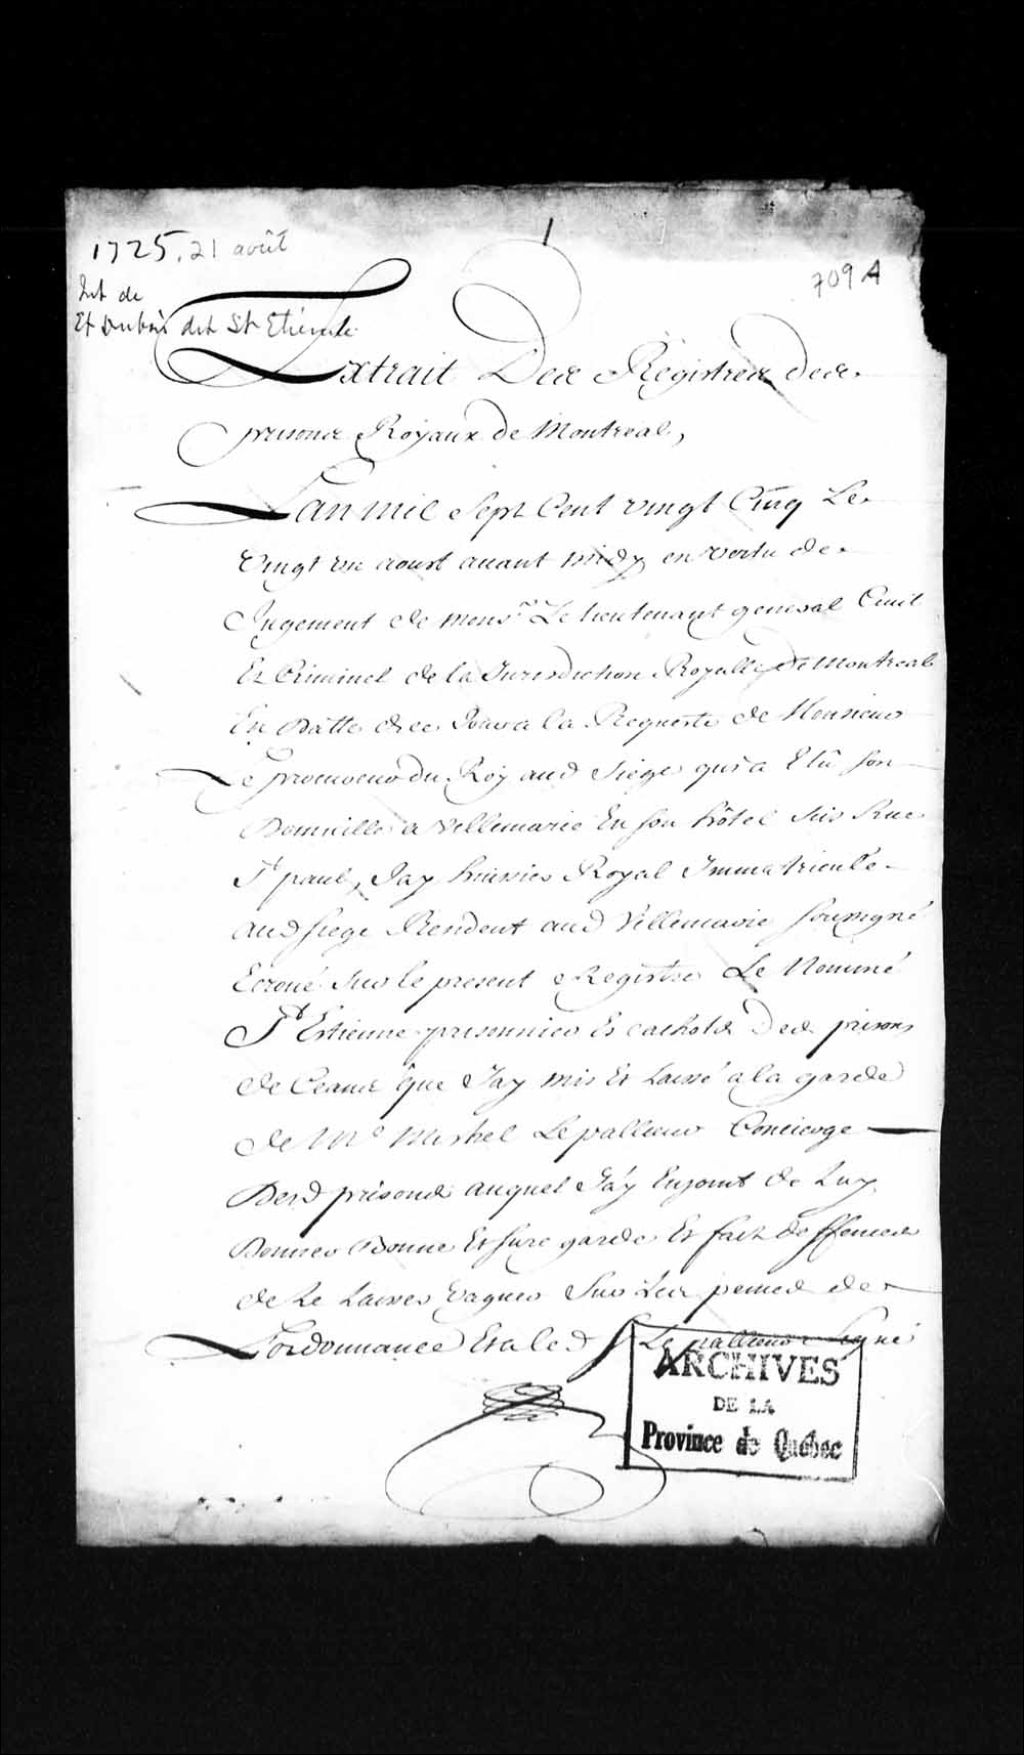 1
1725, 21 août
709 A
Int de
Et Dubois dit St Etienne
Extrait Des Registres des
prisons Royaux de Montreal,
Lan mil Sept Cent vingt Cinq Le
Vingt un aoust avant midy en vertu de
Jugement de Monsr. Le lieutenant general Civil
Et Criminel de la Jurisdiction Royalle de Montreal
En Datte de ce Jour a la Requeste de Monsieur
Le procureur du Roy aud Siege qui a Elû son
Domicille a Villemarie En son hôtel Sis Rue
St paul, Jay huissier Royal Immatriculé
aud siege Resident aud Villemarie soussigné
Ecroué sur le present Registre Le Nommé
St Estienne prisonnier Es cachots Des prisons
de Ceans que Jay mis Et Laissé a la garde
de Me Mishel Lepallieur Concierge
Desd prisons auquel Jáy Enjoint de Luy
Donner Bonne Et sure garde Et fait deffences
de Le Laisser Vaguer Sur Les peines de
L'ordonnance Et a led Sr Le pallieur Signé
ARCHIVES
DE LA
Province de Québec